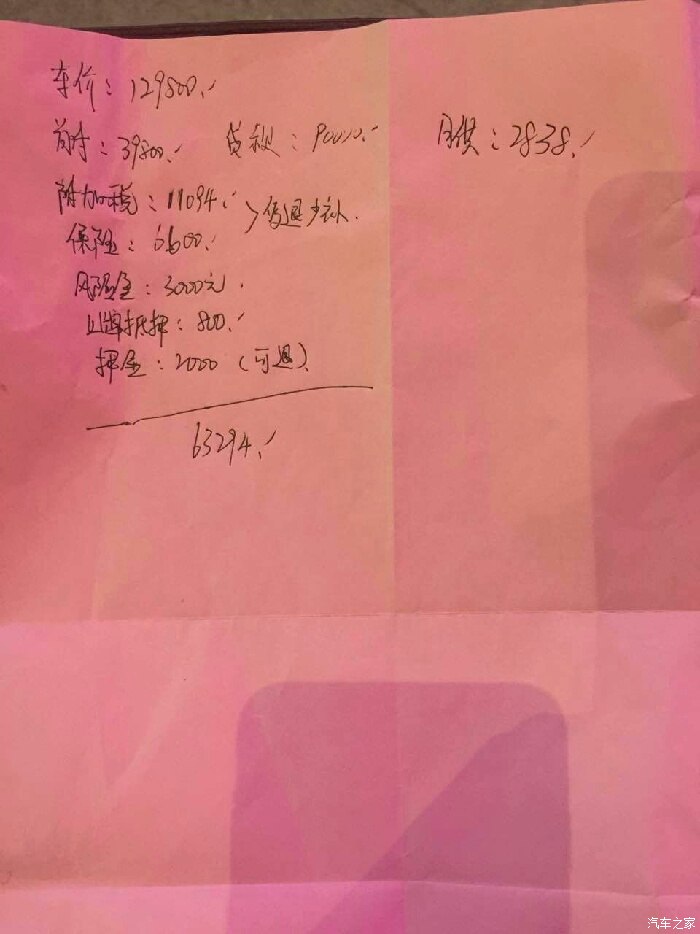 车价：129800.
首付：39800. 贷款：90000. 月供：2838.
附加税：11094. >多退少补.
保险：6600.
风险金：3000元.
上牌抵押：800.
押金：2000（可退）.
63294.
汽车之家